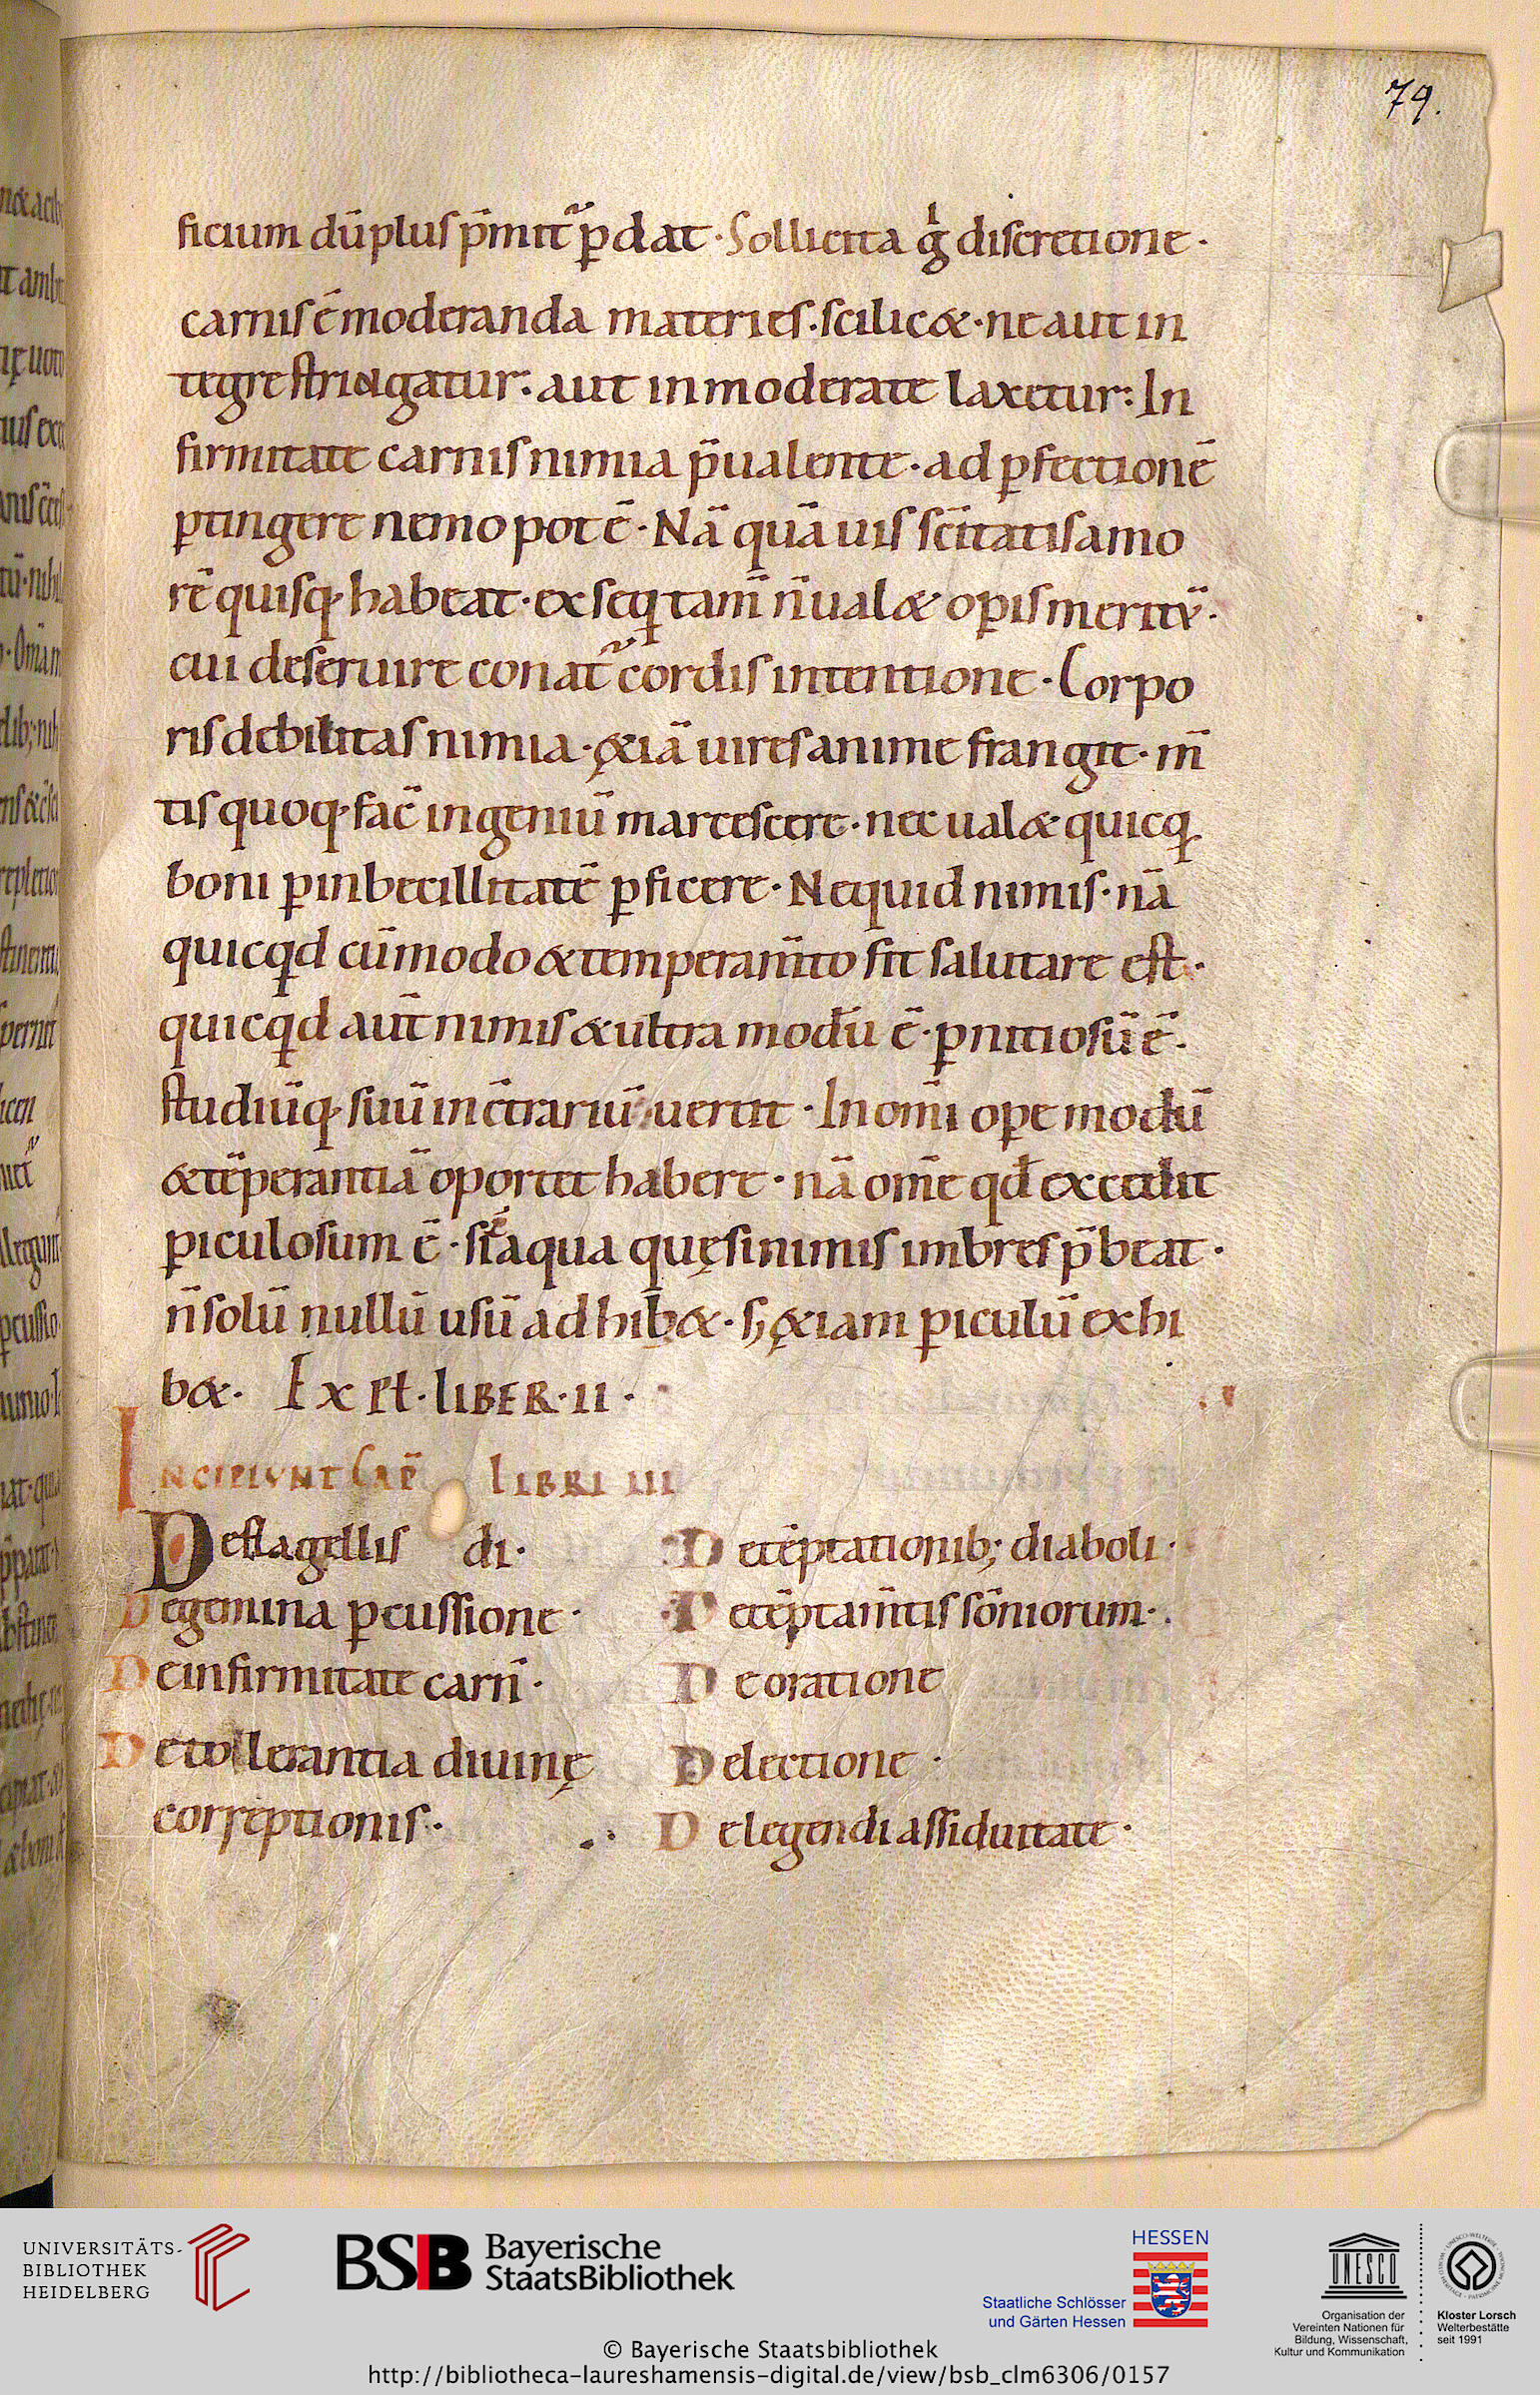 79.
ficium dū plus p̄mit᷑ ꝑdat · Sollicita gͥ discretione ·
carnis ē moderanda materies · scilic& · ne aut in
tegre stringatur · aut inmoderate laxetur : In
firmitate carnis nimia p̄ualente · ad ꝑfectionē
ꝑtingere nemo potē · Nā quāuis sc̄itatis amo
rē quisq· habeat · exseq̣ tam̄ n̄ ual& oꝑis meritū ·
cui deseruire conat᷑ cordis intentione · Corpo
ris debilitas nimia · ę&iā uires anime frangit · m̄
tis quoq· fac̄ ingeniū marcescere · nec ual& quicq
boni ꝑ inbecillitatē ꝑficere · Nequid nimis · nā
quicqd cū modo & temperam̄to fit salutare est ·
quicqd aut̄ nimis & ultra modū ē · ꝑnitiosū ē ·
studiūq· suū in c̄trariū uertit · In om̄i oꝑe modū
& tēperantiā oportet habere · nā om̄e qd̄ excedit
ꝑiculosum ē · sic̄ aqua quę si nimis imbres p̄beat ·
n̄ solū nullū usū adhib& · s; ę&iam ꝑiculū exhi
b& · Exp̄l · LIBER · II ·
INCIPIUNT CAP̄ LIBRI III
De flagellis di · De tēptationib; diaboli ·
De gemina ꝑcussione · De tēptam̄tis sōniorum ·
De infirmitate carn̄ · De oratione
De tollerantia diuinę De lectione ·
correptionis · De legendi assiduitate ·
UNIVERSITÄTS-
BIBLIOTHEK
HEIDELBERG
BSB Bayerische
StaatsBibliothek
HESSEN
Staatliche Schlösser
und Gärten Hessen
UNESCO
Organisation der
Vereinten Nationen für
Bildung, Wissenschaft,
Kultur und Kommunikation
Kloster Lorsch
Welterbestätte
seit 1991
© Bayerische Staatsbibliothek
http://bibliotheca-laureshamensis-digital.de/view/bsb_clm6306/0157